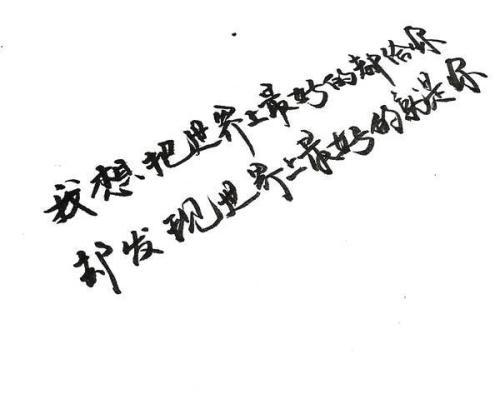 我想把世界上最好的都给你
却发现世界上最好的就是你